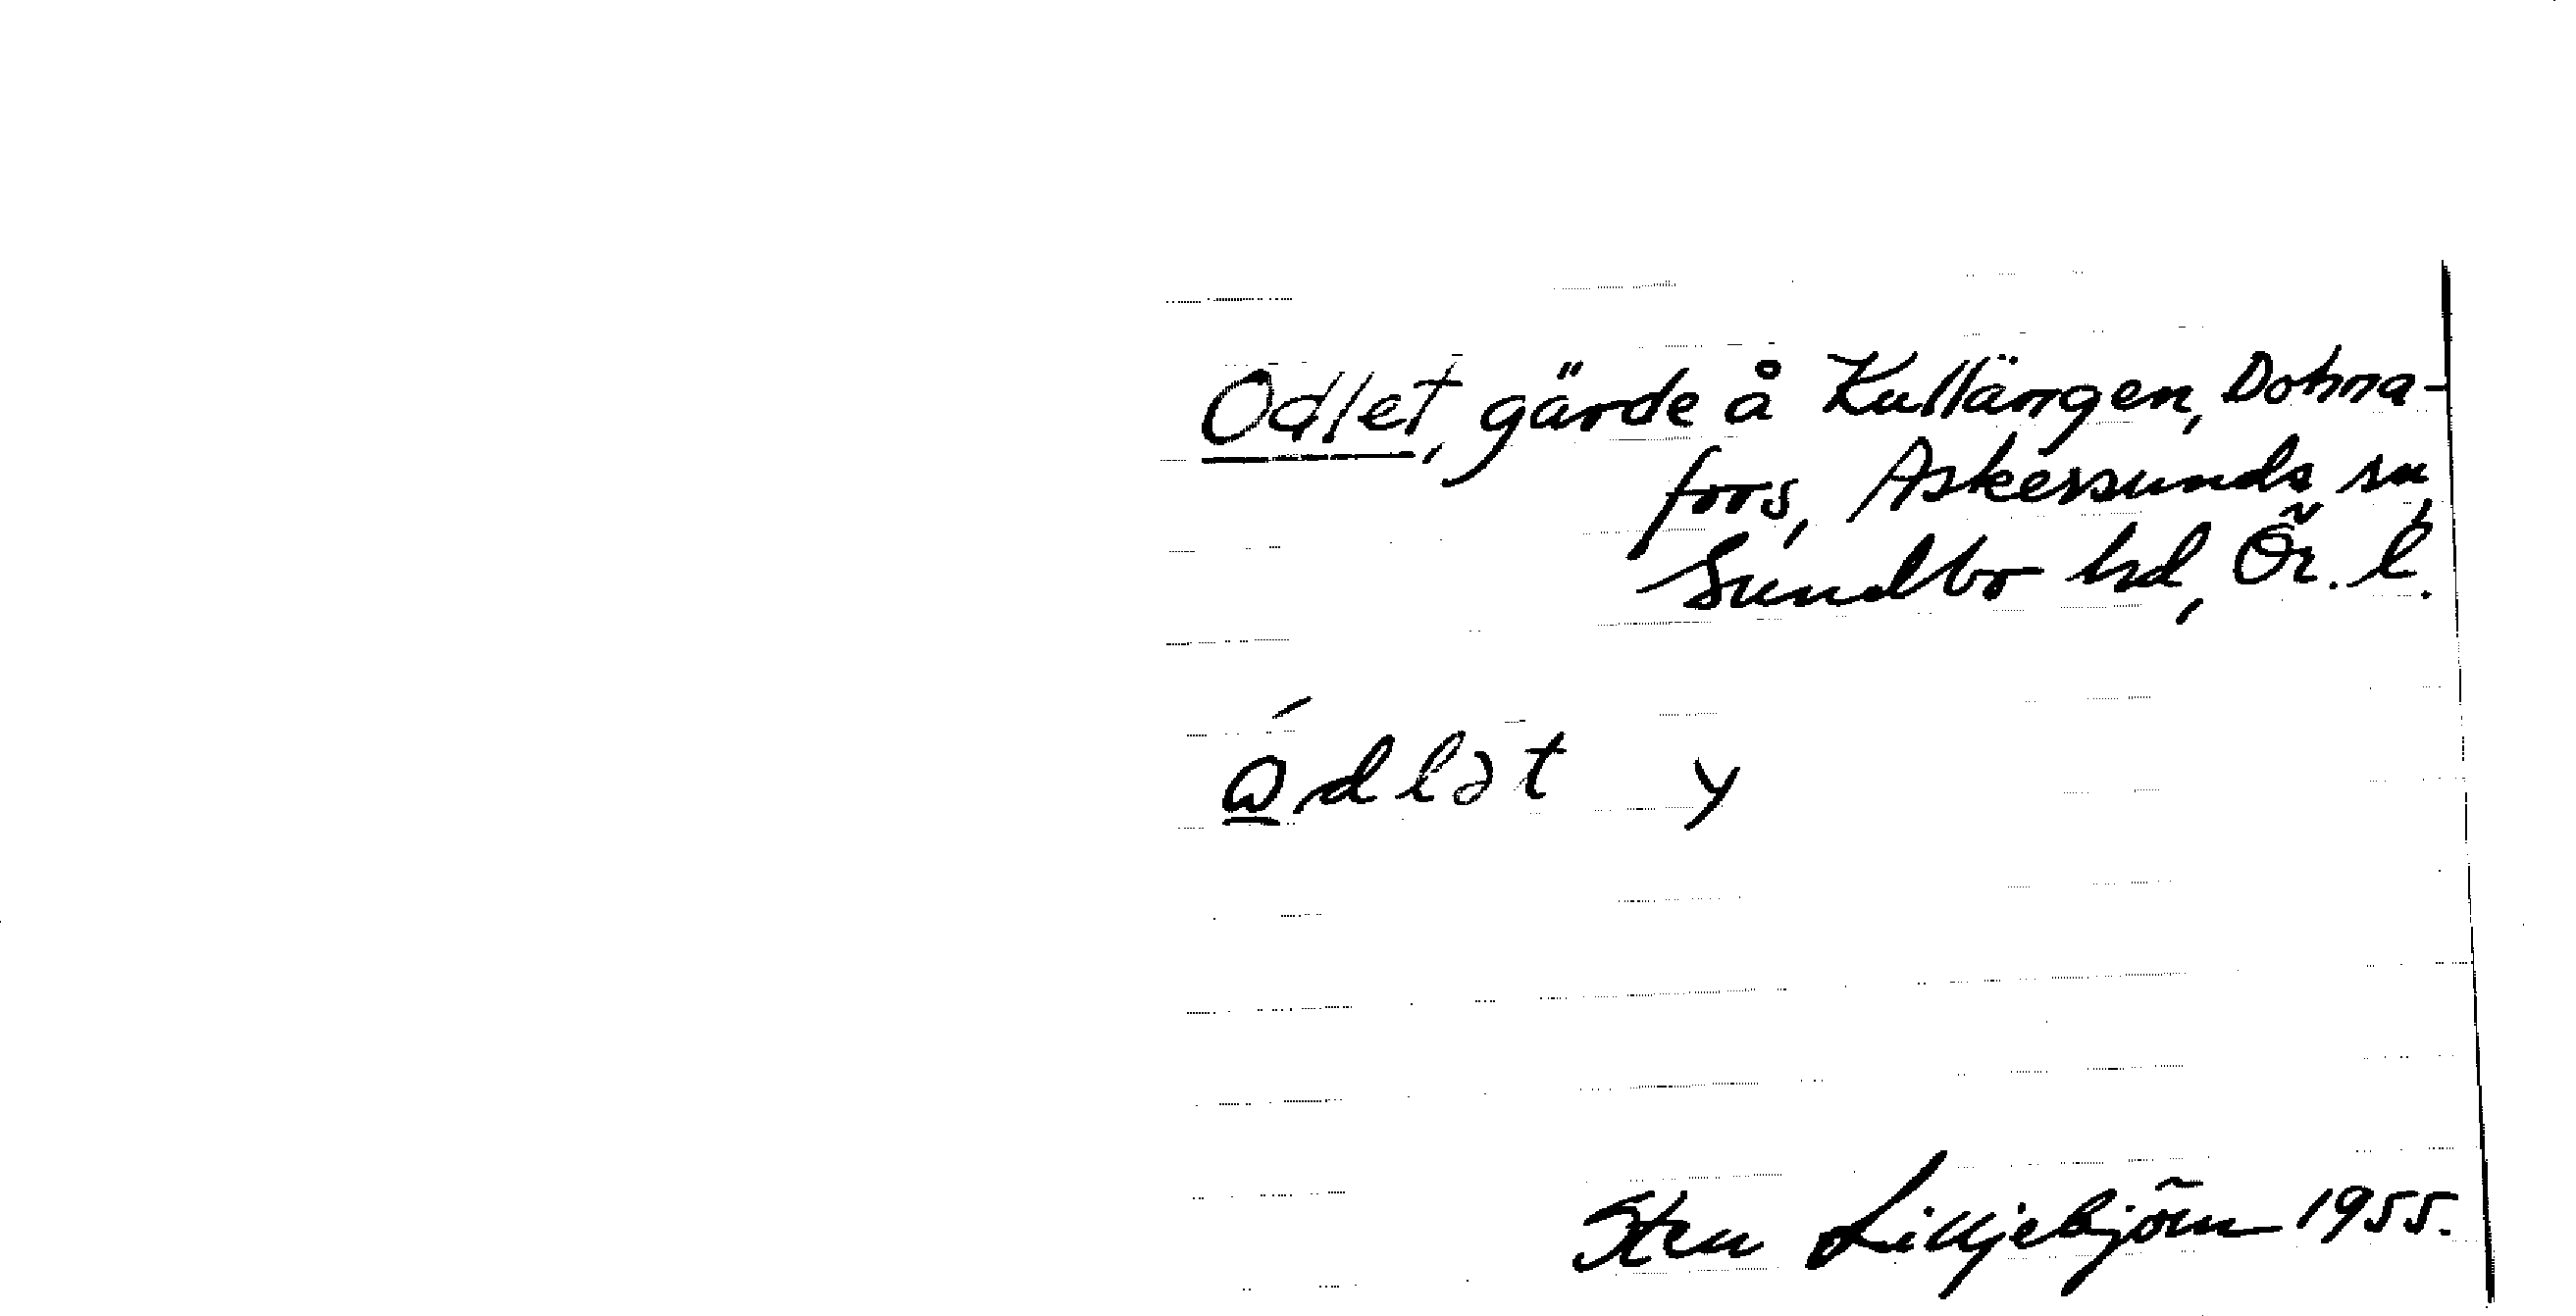 Odlet, gärde å Kullängen, Dohna-
fors, Askersunds sn,
Sundbo hd, Ör. l.
ɷ́dlət y
Sten Lilljebjörn 1955.